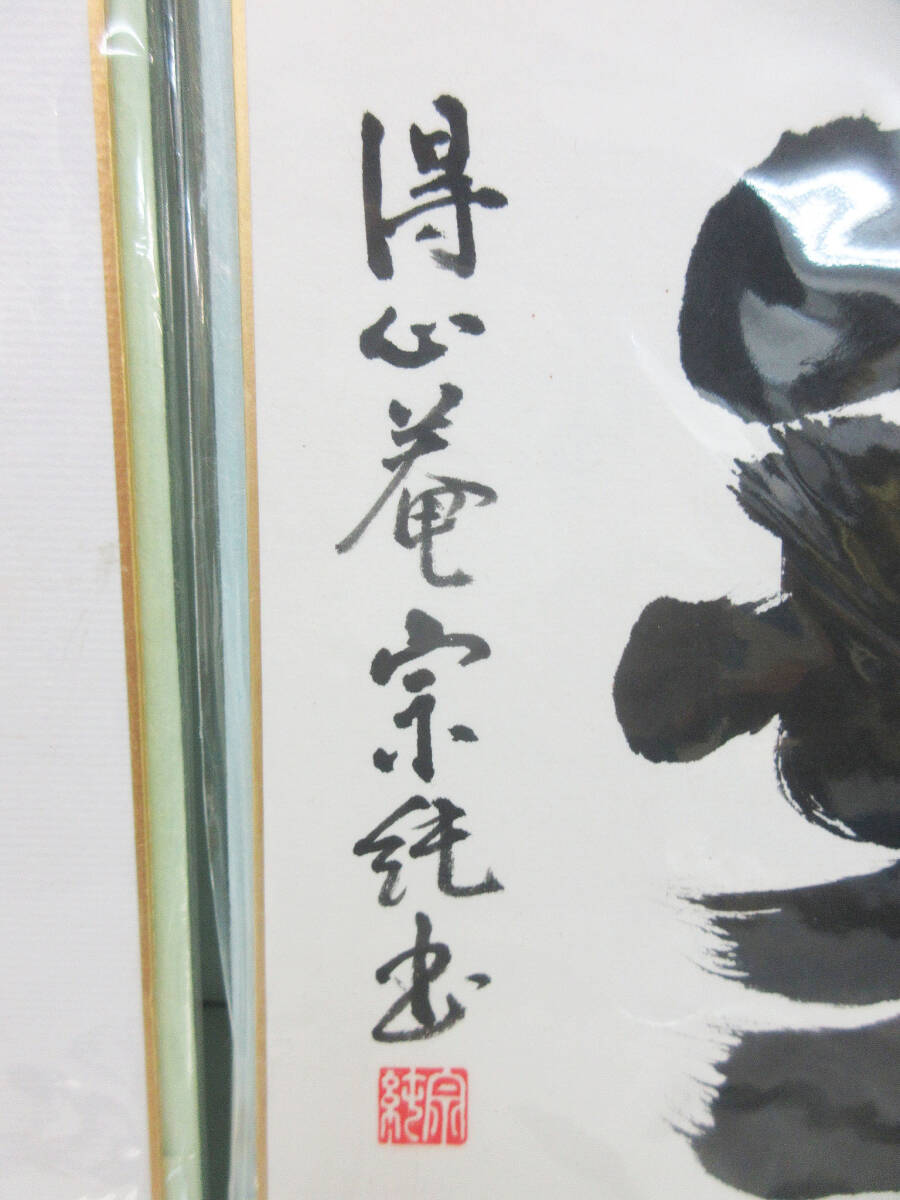 得心菴宗純書
宗純